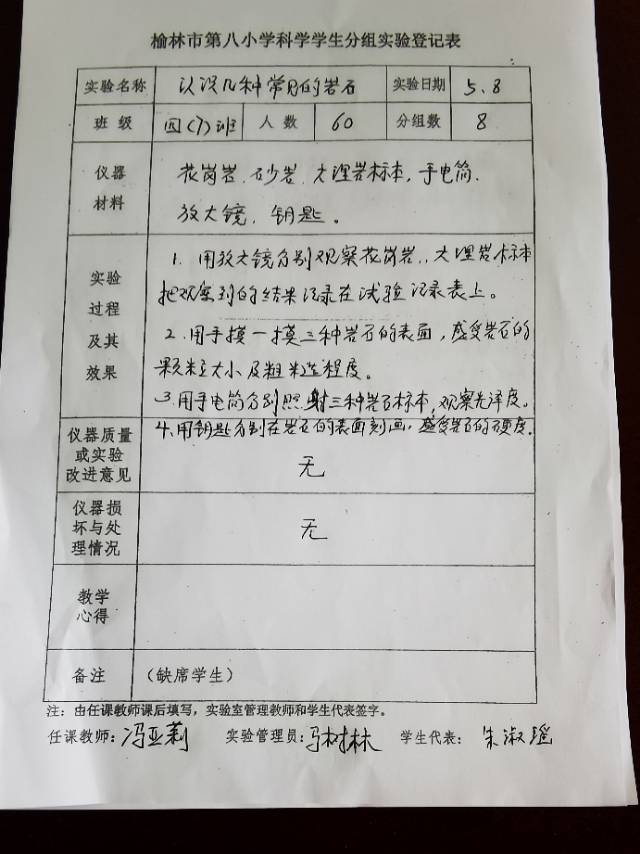 榆林市第八小学科学学生分组实验登记表
实验名称 认识几种常见的岩石 实验日期 5.8
班级 四(7)班 人数 60 分组数 8
仪器 花岗岩、砂岩、大理岩标本，手电筒、
材料 放大镜、钥匙。
实验过程及其效果
1. 用放大镜分别观察花岗岩、大理岩标本
把观察到的结果记录在试验记录表上。
2. 用手摸一摸三种岩石的表面，感受岩石的
颗粒大小及粗糙程度。
3. 用手电筒分别照射三种岩石标本，观察光泽度。
4. 用钥匙分别在岩石的表面刻画，感受岩石的硬度。
仪器质量
或实验
改进意见
无
仪器损
坏与处
理情况
无
教学
心得
备注 （缺席学生）
注：由任课教师课后填写，实验室管理教师和学生代表签字。
任课教师：冯亚莉 实验管理员：马树林 学生代表：朱淑瑶